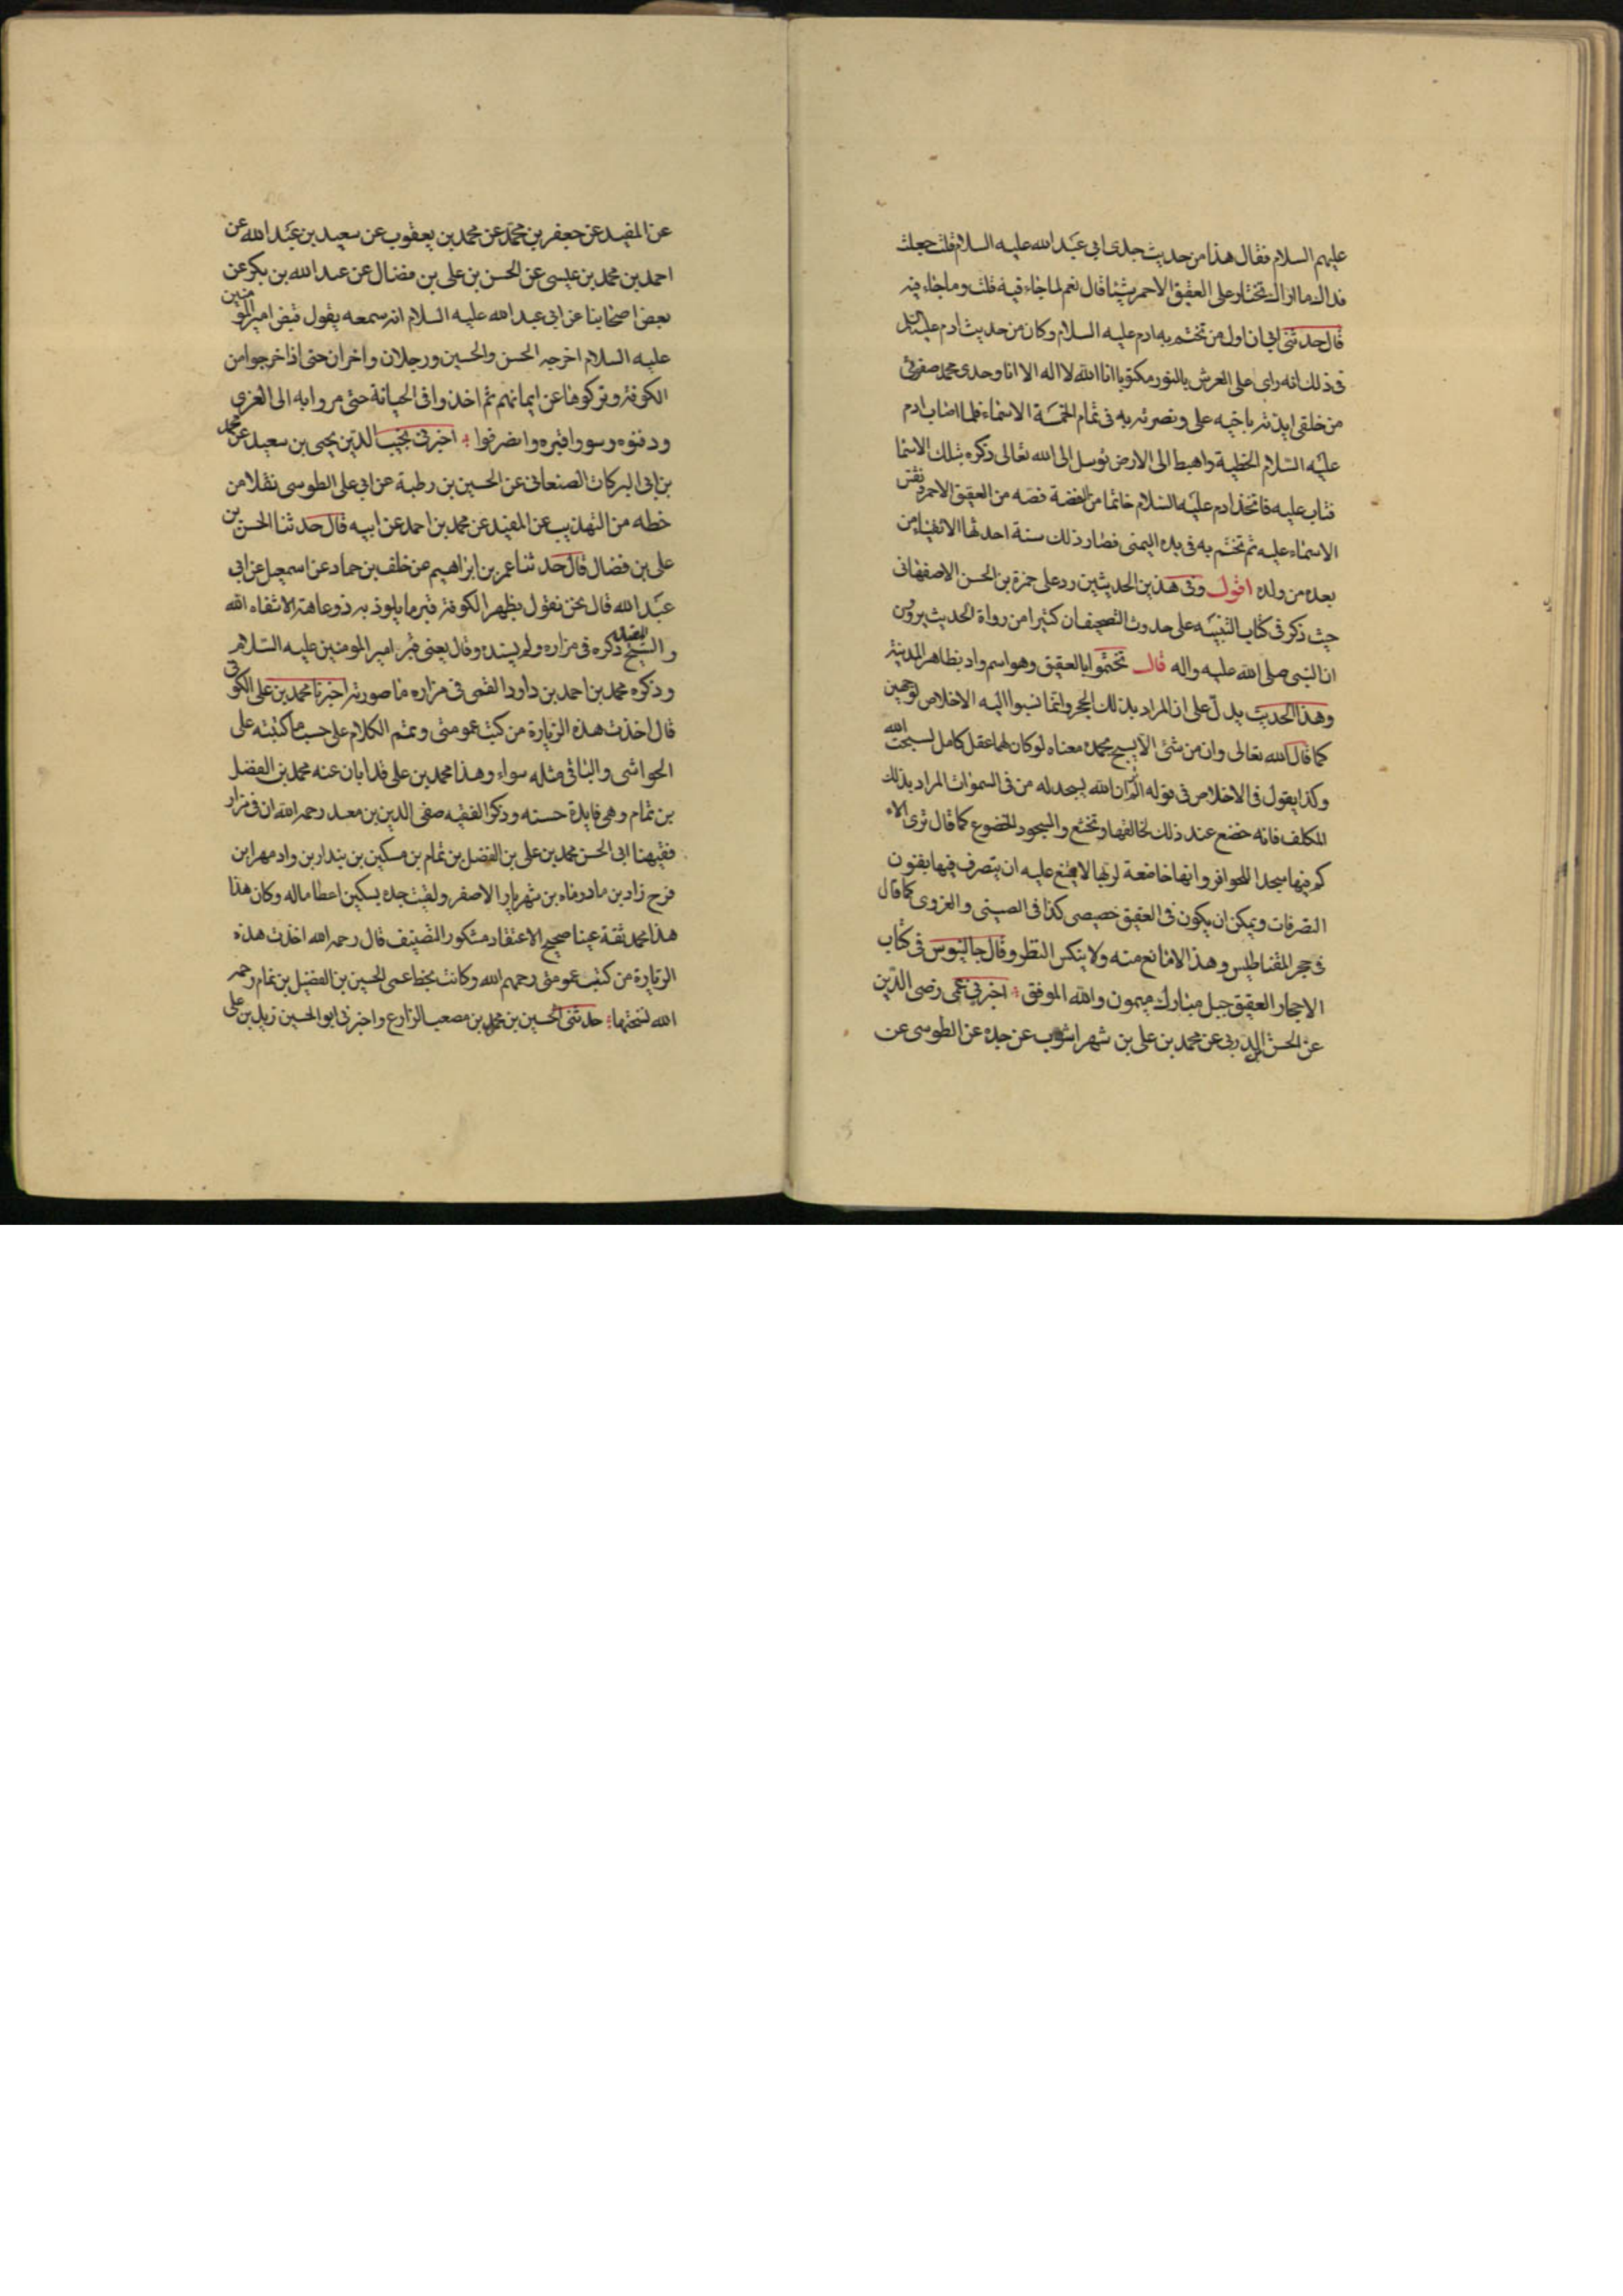 عليهم السلام فقال هذا من حديث جدى ابى عبد الله عليه السلام قلت جعلت
فداك ما اراك تختار على العقيق الاحمر شيئا قال نعم لما جاء فيه قلت وما جاء فيه
قال حدثنى ابى ان اول من تختم به ادم عليه السلام وكان من حديث ادم عليه السلم
فى ذلك انه راى على العرش بالنور مكتوبا انا الله لا اله الا انا وحدى محمد صفوتى
من خلقى ايدته باخيه على ونصرته به فى تمام الخمسة الاسماء فلما اصاب ادم
عليه السلام الخطية واهبط الى الارض توسل الى الله تعالى ذكره بتلك الاسما
فتاب عليه فاتخذ ادم عليه السلام خاتما من الفضة فصه من العقيق الاحمر ونقش
الاسماء عليه ثم تختم به فى يده اليمنى فصار ذلك سنة احد لها الاتقياء من
بعده من ولده اقول وفى هذين الحديثين رد على حمزة بن الحسن الاصفهانى
حيث ذكر فى كتاب التنبيه على حدوث التصحيف ان كثيرا من رواة الحديث يروون
ان النبى صلى الله عليه واله قال تختموا بالعقيق وهو اسم واد بظاهر المدينة
وهذا الحديث يدل على ان المراد بذلك الحجر وانما نسبوا اليه الاخلاص لوجهين
كما قال الله تعالى وان من شئ الا يسبح بحمده معناه لو كان لهما عقل كامل لسبحت الله
وكذا يقول فى الاخلاص فى قوله الم تر ان الله يسجد له من فى السموات المراد بذلك
المكلف فانه خضع عند ذلك لخالقها وتخشع والسجود الخضوع كما قال ترى الاء
كم فيها سجدا للحوافر وانها خاضعة لربها لا يمتنع عليه ان يتصرف فيها بفنون
التصرفات ويمكن ان يكون فى العقيق خصيصى كذا فى الصينى والغروى كما قال
فى حجر المقناطيس وهذا لا مانع منه ولا ينكس النظر وقال جالينوس فى كتاب
الاحجار العقيق جبل مبارك ميمون والله الموفق اخبرنى عمى رضى الدين
عن الحسن الدربى عن محمد بن على بن شهراشوب عن جده عن الطوسى عن
عن المفيد عن جعفر بن محمد عن محمد بن يعقوب عن سعيد بن عبد الله عن
احمد بن محمد بن عيسى عن الحسن بن على بن فضال عن عبد الله بن بكر عن
بعض اصحابنا عن ابى عبد الله عليه السلام انه سمعه يقول قبض امير المؤمنين
عليه السلام اخرجه الحسن والحسين ورجلان واخران حتى اذا خرجوا من
الكوفة وتركوها عن ايمانهم ثم اخذوا فى الجبانة حتى مروا به الى الغرى
ودفنوه وسووا قبره وانصرفوا اخبرنى نجيب الدين يحيى بن سعيد عن محمد
بن ابى البركات الصنعانى عن الحسين بن رطبة عن ابى على الطوسى نقلا من
خطه من التهذيب عن المفيد عن محمد بن احمد عن ابيه قال حدثنا الحسن بن
على بن فضال قال حدثنا عمر بن ابراهيم عن خلف بن حماد عن اسمعيل عن ابى
عبد الله قال نحن نقول بظهر الكوفة قبر ما يلوذ به ذو عاهة الا شفاه الله
والشيخ المفيد ذكره فى مزاره ولم يسنده وقال يعنى قبر امير المومنين عليه السلام
وذكره محمد بن احمد بن داود القمى فى مزاره ما صورته اخبرنا محمد بن على الكوفى
قال اخذت هذه الزيارة من كتب عمومتى ويتم الكلام على حسب ما كتبته على
الحواشى والباقى مثله سواء وهذا محمد بن على قد ابان عنه محمد بن الفضل
بن تمام وهى فايدة حسنه وذكر الفقيه صفى الدين بن معد رحمه الله ان فى مزار
فقيهنا ابى الحسن محمد بن على بن الفضل بن تمام بن سكين بن بنداربن داد مهر ابن
فرخ زاد بن مادرماه بن شهريار الاصغر ولقبت جده بسكين اعطا ماله وكان هذا
هذا محمد ثقة عينا صحيح الاعتقاد مشكور التصنيف قال رحمه الله اخذت هذه
الزيارة من كتب عمومتى رحمهم الله وكانت بخط عمى الحسين بن الفضل بن تمام رحمه
الله نسختها حدثنى الحسين بن محمد بن مصعب الزارع واخبرنى ابو الحسين زيد بن على